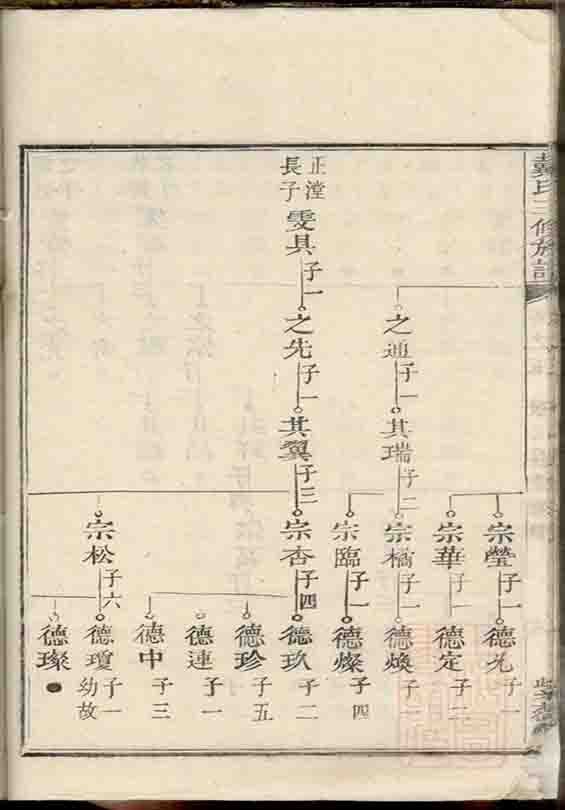 戴氏三修族譜
正瀅
長子
雯具 子一
之先 子一
之通 子一
其翼 子三
其瑞 子二
宗瑩 子一
宗華 子一
宗橘 子一
宗臨 子一
宗杏 子四
宗松 子六
德光 子一
德定 子二
德煥
德燦 子四
德玖 子二
德珍 子五
德連 子一
德中 子三
德瓊 子一
幼故
德璨